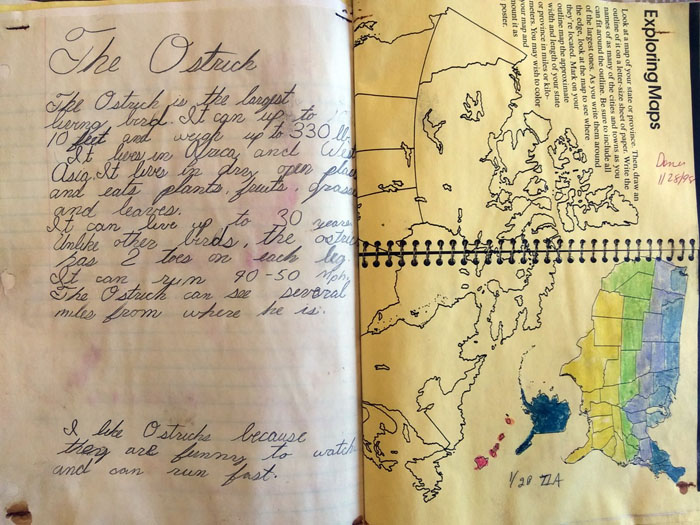 The Ostrich
The Ostrich is the largest
living bird. It can up to
10 feet and weigh up to 330 lb
It lives in Africa and West
Asia. It lives in dry, open place
and eats plants, fruits, grasse
and leaves.
It can live up to 30 years
Unlike other birds, the ostric
has 2 toes on each leg.
It can run 40-50 mph.
The Ostrich can see several
miles from where he is.
I like Ostrichs because
they are funny to watch
and can run fast.
Exploring Maps
Look at a map of your state or province. Then, draw an
outline of it on a letter-size sheet of paper. Write the
names of as many of the cities and towns as you
can fit around the outline. Be sure to include all
of the largest ones. As you write them around
the edge, look at the map to see where
they're located. Mark on your
outline map the approximate
width and length of your state
or province in miles or kilo-
meters. You may wish to color
your map and
mount it as
poster.
1/28/98
1/28 IIA